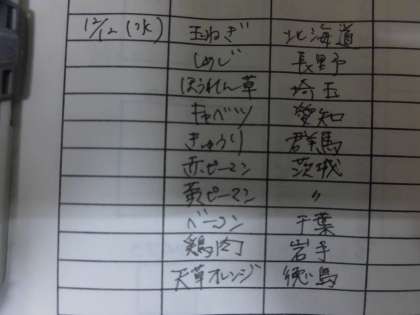 12/12(水) 玉ねぎ 北海道
しめじ 長野
ほうれん草 埼玉
キャベツ 愛知
きゅうり 群馬
赤ピーマン 茨城
黄ピーマン 〃
ベーコン 千葉
鶏肉 岩手
天草オレンジ 徳島